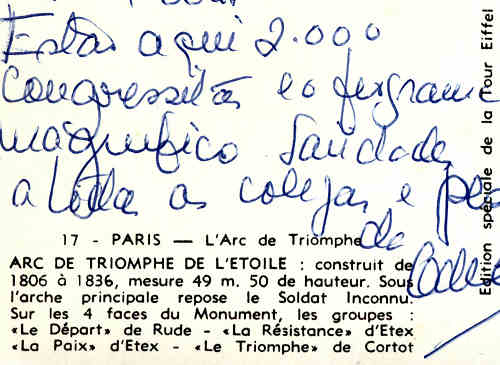 Estão aqui 2.000
Congressistas e o programa
magnifico Saudades
a todas as colegas e
da
17 - PARIS — L'Arc de Triomphe
ARC DE TRIOMPHE DE L'ETOILE : construit de
1806 à 1836, mesure 49 m. 50 de hauteur. Sous
l'arche principale repose le Soldat Inconnu.
Sur les 4 faces du Monument, les groupes :
«Le Départ» de Rude - «La Résistance» d'Etex
«La Paix» d'Etex - «Le Triomphe» de Cortot
Edition spéciale de la Tour Eiffel